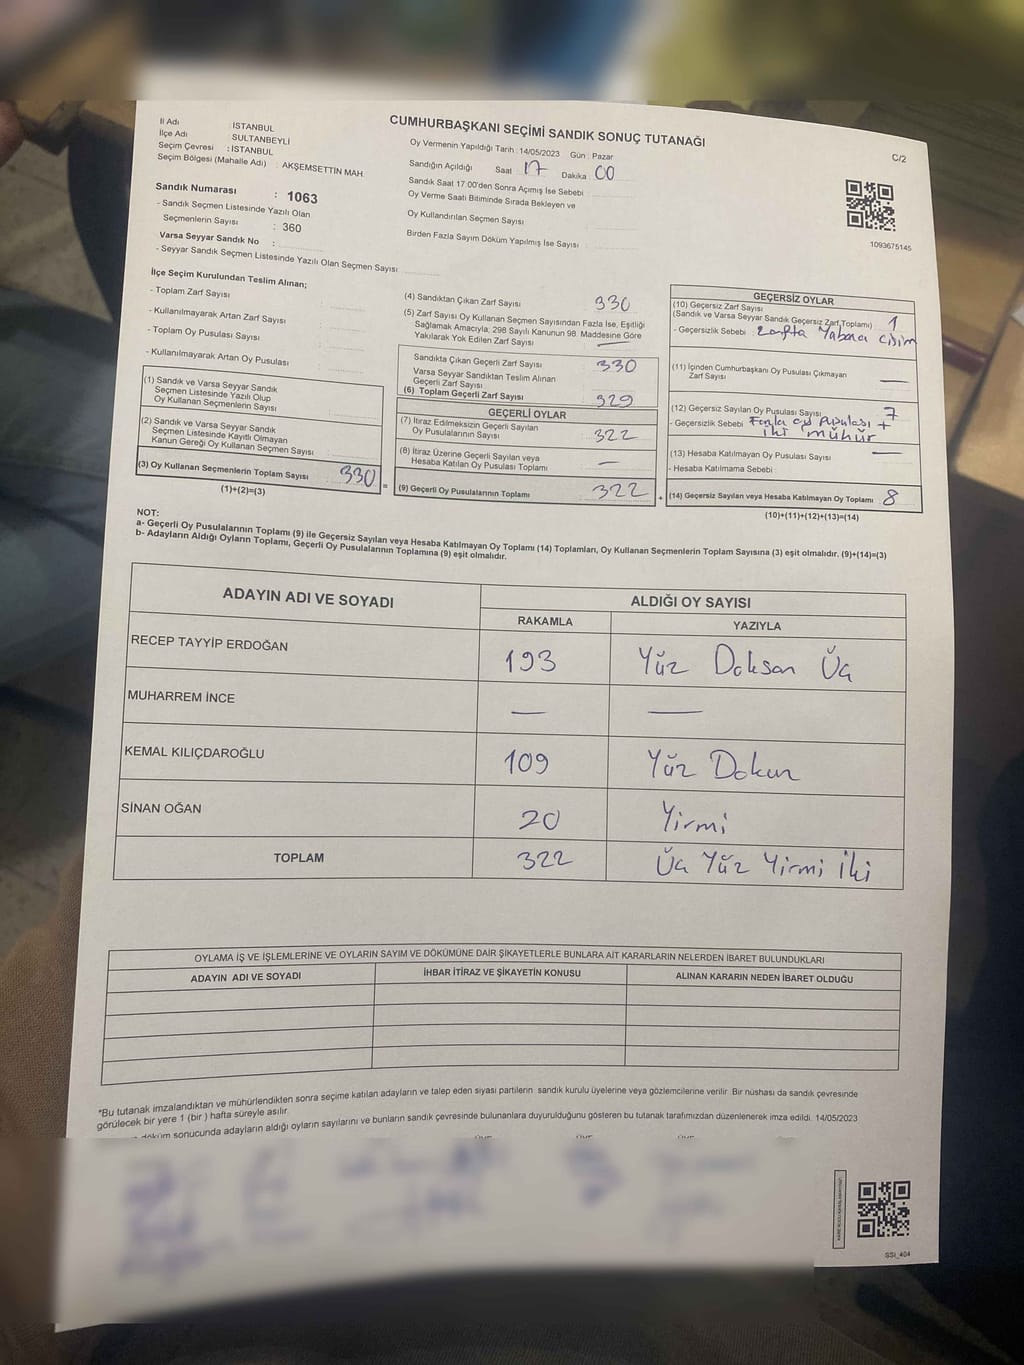 CUMHURBAŞKANI SEÇİMİ SANDIK SONUÇ TUTANAĞI
C/2
İl Adı : İSTANBUL
İlçe Adı : SULTANBEYLİ
Seçim Çevresi : İSTANBUL
Seçim Bölgesi (Mahalle Adı) : AKŞEMSETTİN MAH.
Sandık Numarası : 1063
- Sandık Seçmen Listesinde Yazılı Olan
Seçmenlerin Sayısı : 360
Varsa Seyyar Sandık No :
- Seyyar Sandık Seçmen Listesinde Yazılı Olan Seçmen Sayısı
Oy Vermenin Yapıldığı Tarih : 14/05/2023 Gün : Pazar
Sandığın Açıldığı Saat 17 Dakika 00
Sandık Saat 17.00'den Sonra Açımış İse Sebebi
Oy Verme Saati Bitiminde Sırada Bekleyen ve
Oy Kullandırılan Seçmen Sayısı
Birden Fazla Sayım Döküm Yapılmış İse Sayısı
1093675145
İlçe Seçim Kurulundan Teslim Alınan;
- Toplam Zarf Sayısı
- Kullanılmayarak Artan Zarf Sayısı
- Toplam Oy Pusulası Sayısı
- Kullanılmayarak Artan Oy Pusulası
(1) Sandık ve Varsa Seyyar Sandık
Seçmen Listesinde Yazılı Olup
Oy Kullanan Seçmenlerin Sayısı
(2) Sandık ve Varsa Seyyar Sandık
Seçmen Listesinde Kayıtlı Olmayan
Kanun Gereği Oy Kullanan Seçmen Sayısı
(3) Oy Kullanan Seçmenlerin Toplam Sayısı 330
(1)+(2)=(3)
=
(4) Sandıktan Çıkan Zarf Sayısı 330
(5) Zarf Sayısı Oy Kullanan Seçmen Sayısından Fazla İse, Eşitliği
Sağlamak Amacıyla; 298 Sayılı Kanunun 98. Maddesine Göre
Yakılarak Yok Edilen Zarf Sayısı —
Sandıkta Çıkan Geçerli Zarf Sayısı 330
Varsa Seyyar Sandıktan Teslim Alınan
Geçerli Zarf Sayısı
(6) Toplam Geçerli Zarf Sayısı 329
GEÇERLİ OYLAR
(7) İtiraz Edilmeksizin Geçerli Sayılan
Oy Pusulalarının Sayısı 322
(8) İtiraz Üzerine Geçerli Sayılan veya
Hesaba Katılan Oy Pusulası Toplamı —
(9) Geçerli Oy Pusulalarının Toplamı 322
+
GEÇERSİZ OYLAR
(10) Geçersiz Zarf Sayısı
(Sandık ve Varsa Seyyar Sandık Geçersiz Zarf Toplamı) 1
- Geçersizlik Sebebi : Zarfta Yabancı cisim
(11) İçinden Cumhurbaşkanı Oy Pusulası Çıkmayan
Zarf Sayısı —
(12) Geçersiz Sayılan Oy Pusulası Sayısı 7
- Geçersizlik Sebebi Fazla oy Pusulası +
iki mühür
(13) Hesaba Katılmayan Oy Pusulası Sayısı —
- Hesaba Katılmama Sebebi
(14) Geçersiz Sayılan veya Hesaba Katılmayan Oy Toplamı 8
(10)+(11)+(12)+(13)=(14)
NOT:
a- Geçerli Oy Pusulalarının Toplamı (9) ile Geçersiz Sayılan veya Hesaba Katılmayan Oy Toplamı (14) Toplamları, Oy Kullanan Seçmenlerin Toplam Sayısına (3) eşit olmalıdır. (9)+(14)=(3)
b- Adayların Aldığı Oyların Toplamı, Geçerli Oy Pusulalarının Toplamına (9) eşit olmalıdır.
ADAYIN ADI VE SOYADI
ALDIĞI OY SAYISI
RAKAMLA YAZIYLA
RECEP TAYYİP ERDOĞAN 193 Yüz Doksan Üç
MUHARREM İNCE — —
KEMAL KILIÇDAROĞLU 109 Yüz Dokuz
SİNAN OĞAN 20 Yirmi
TOPLAM 322 Üç Yüz Yirmi İki
OYLAMA İŞ VE İŞLEMLERİNE VE OYLARIN SAYIM VE DÖKÜMÜNE DAİR ŞİKAYETLERLE BUNLARA AİT KARARLARIN NELERDEN İBARET BULUNDUKLARI
ADAYIN ADI VE SOYADI İHBAR İTİRAZ VE ŞİKAYETİN KONUSU ALINAN KARARIN NEDEN İBARET OLDUĞU
*Bu tutanak imzalandıktan ve mühürlendikten sonra seçime katılan adayların ve talep eden siyasi partilerin sandık kurulu üyelerine veya gözlemcilerine verilir. Bir nüshası da sandık çevresinde
görülecek bir yere 1 (bir ) hafta süreyle asılır.
döküm sonucunda adayların aldığı oyların sayılarını ve bunların sandık çevresinde bulunanlara duyurulduğunu gösteren bu tutanak tarafımızdan düzenlenerek imza edildi. 14/05/2023
SSI_404